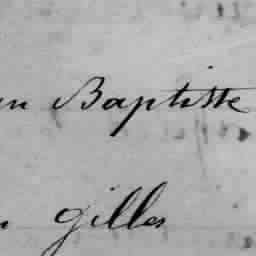 en Baptiste
gilles